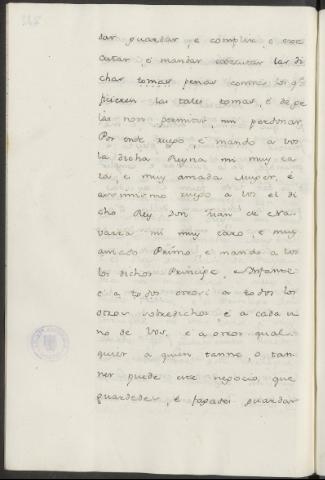 dar guardar, e complir, e exe
cutar, é mandar executar las di
chas tomas penas contra los qe
ficieren las tales tomas, é de pe
las non permitir, nin perdonar
Por ende ruego, é mando a vos
la dicha Reyna mi muy ca
ra, e muy amada Muger, é
assimismo ruego a vos el di
cho Rey Don Juan de Na
varra mi muy caro, e muy
amado Primo, e mando a vos
los dichos Principe, e Infante
e a todos otrosi a todos los
otros sobredichos e a cada u
no de Vos, e a otros qual
quier a quien tanne, o tan
ner puede este negocio, que
guardedes, é fagades guardar